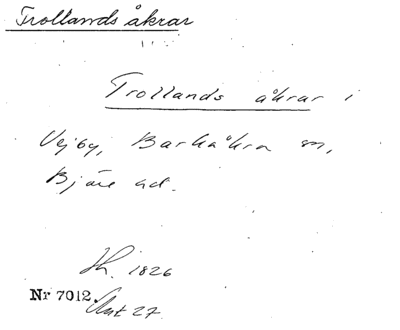 Trollands åkrar
Trollands åkrar i
Vejby, Barkåkra sn,
Bjäre hd.
Sk. 1826
Nr 7012. Akt 27